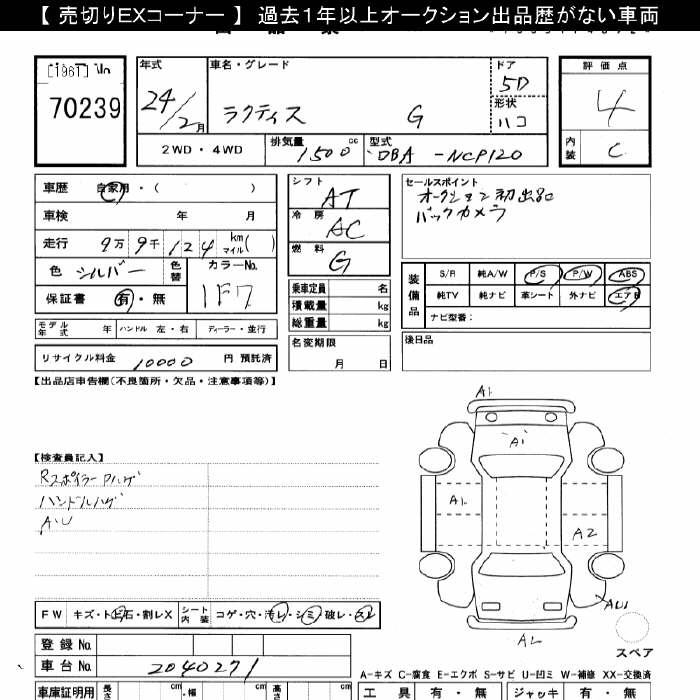 【 売切りEXコーナー 】 過去1年以上オークション出品歴がない車両
70239
年式 24/2月
車名・グレード ラクティス G
ドア 5D
形状 ハコ
評価点 4
内装 C
2WD・4WD
排気量 1500 cc
型式 DBA-NCP120
車歴 自家用・( )
車検 年 月
走行 9万 9千 124 km マイル( )
色 シルバー 色替
カラーNo. 1F7
保証書 有・無
モデル年式 年 ハンドル 左・右 ディーラー・並行
リサイクル料金 10000 円 預託済
シフト AT
冷房 AC
燃料 G
乗車定員 名
積載量 kg
総重量 kg
名変期限
月 日
セールスポイント
オークション初出品
バックカメラ
装備品
S/R 純A/W P/S P/W ABS
純TV 純ナビ 革シート 外ナビ エアB
ナビ型番:
後日品
【出品店申告欄(不良箇所・欠品・注意事項等)】
【検査員記入】
Rスポイラーワレハゲ
ハンドルハゲ
AU
A1
A1
A1
A2
AU1
A2
スペア
FW キズ・ト石・割レX シート内装 コゲ・穴・汚レ・シミ・破レ・スレ
登録 No.
車台 No. 2040271
A-キズ C-腐食 E-エクボ S-サビ U-凹ミ W-補修 XX-交換済
車庫証明用 長さ cm ・幅 cm 高さ cm
工具 有・無 ジャッキ 有・無